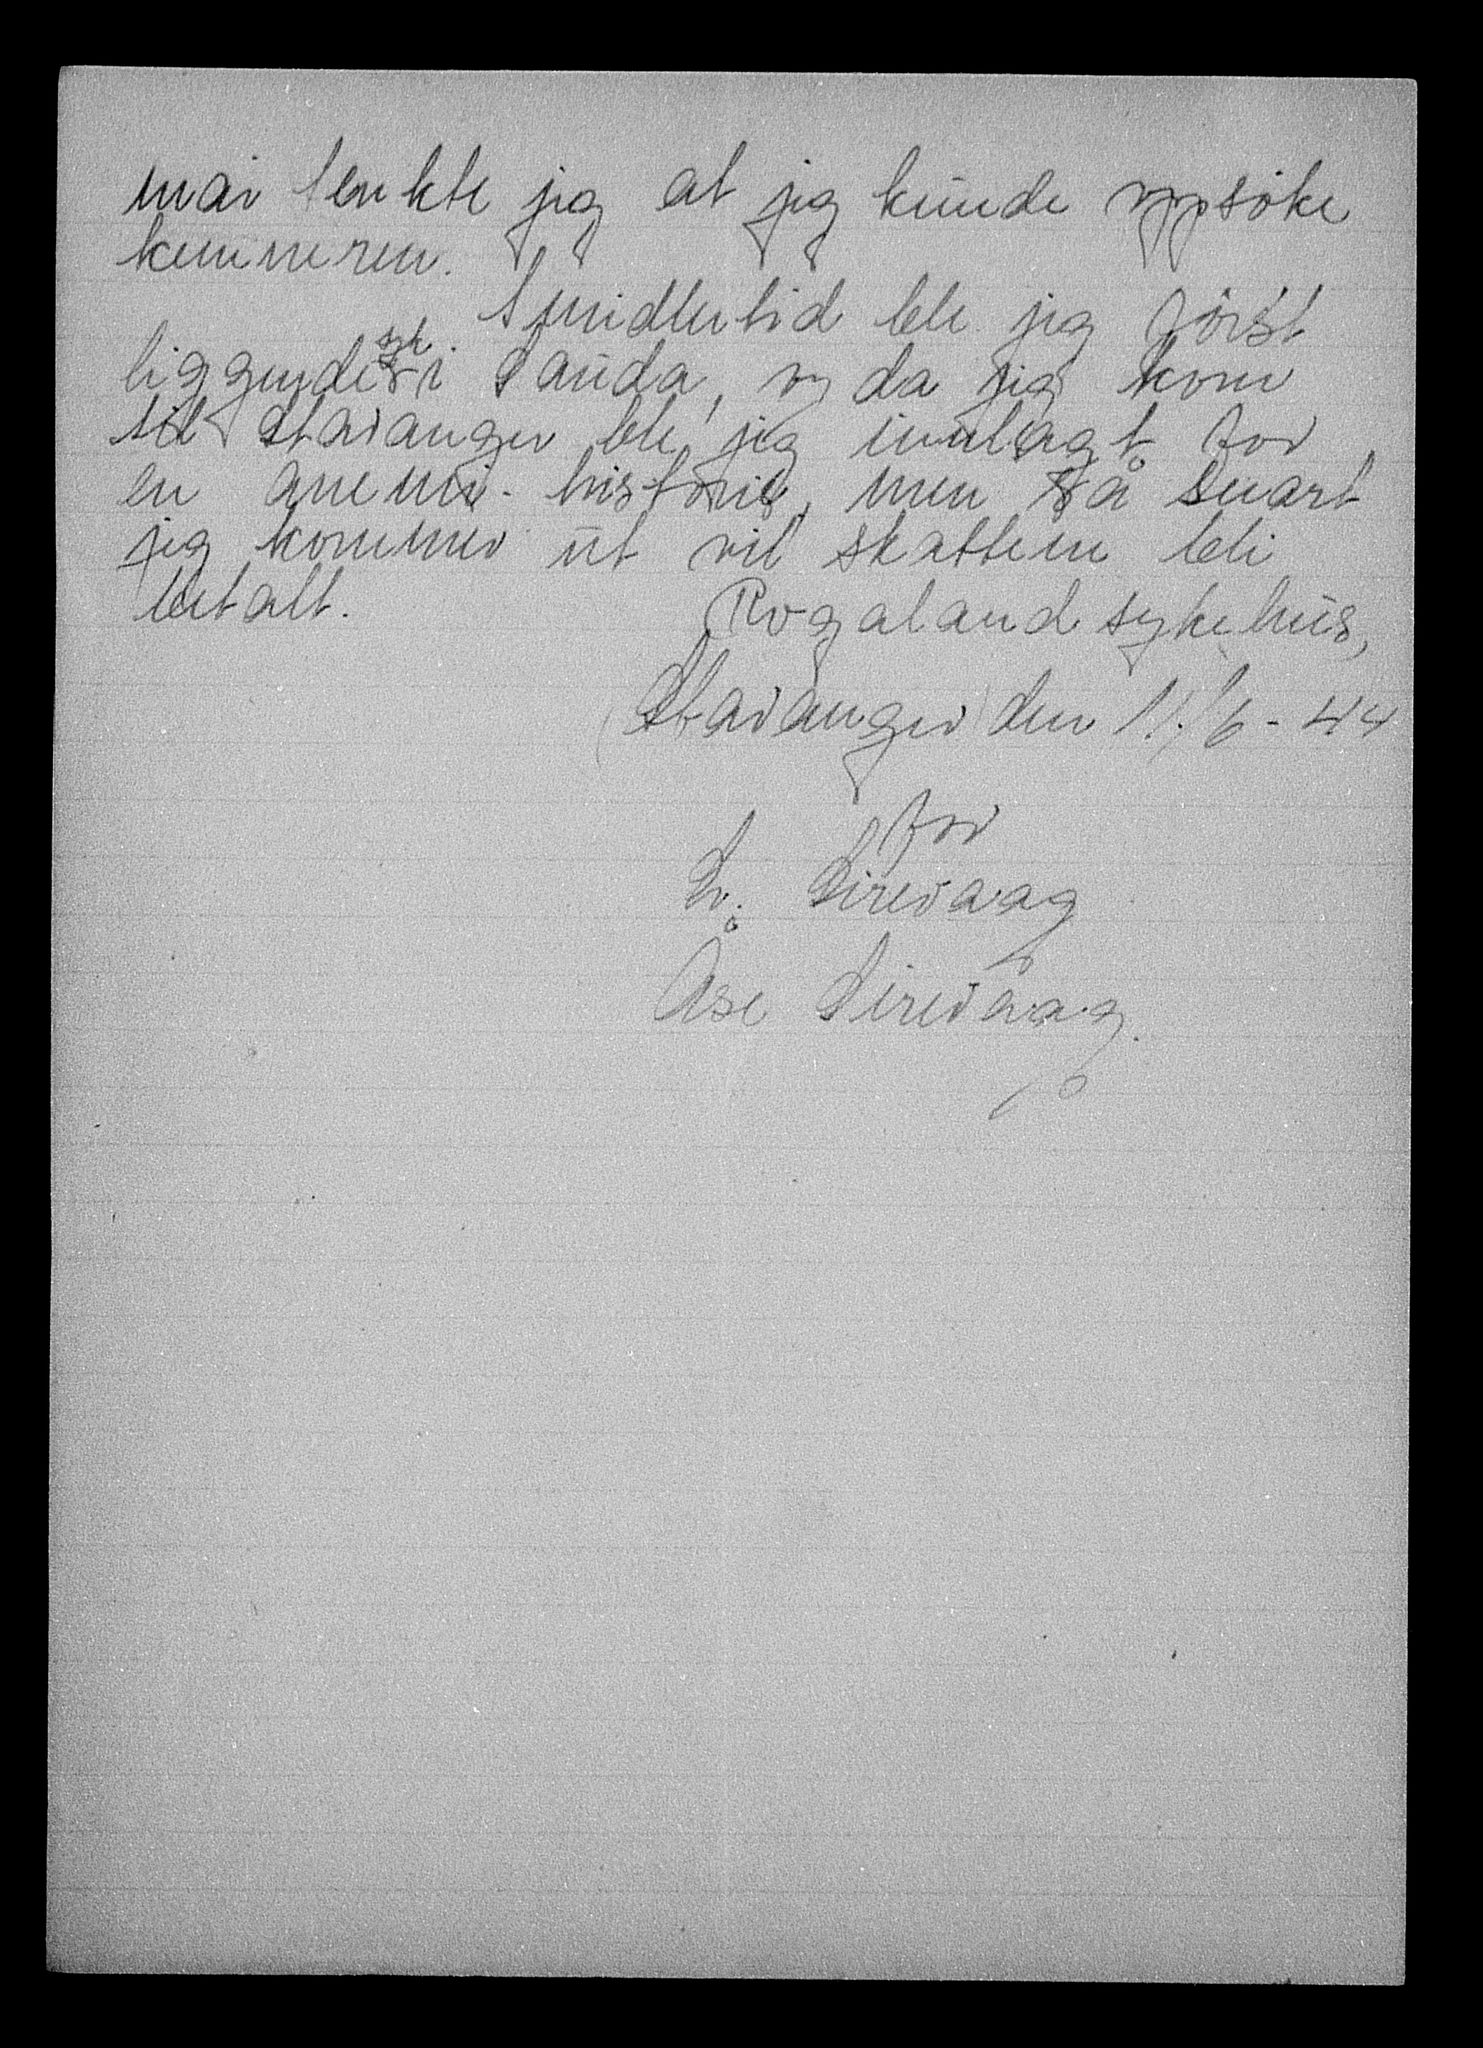 mai tenkte jeg at jeg kunde oppsøke
kemneren.
Imidlertid ble jeg først
liggende syk i Sauda, og da jeg kom
til Stavanger ble jeg innlagt for
en anemi-historie, men så snart
jeg kommer ut vil skatten bli
betalt.
Rogaland sykehus,
Stavanger den 11/6-44
for
L. Sirevaag
Åse Sirevaag.